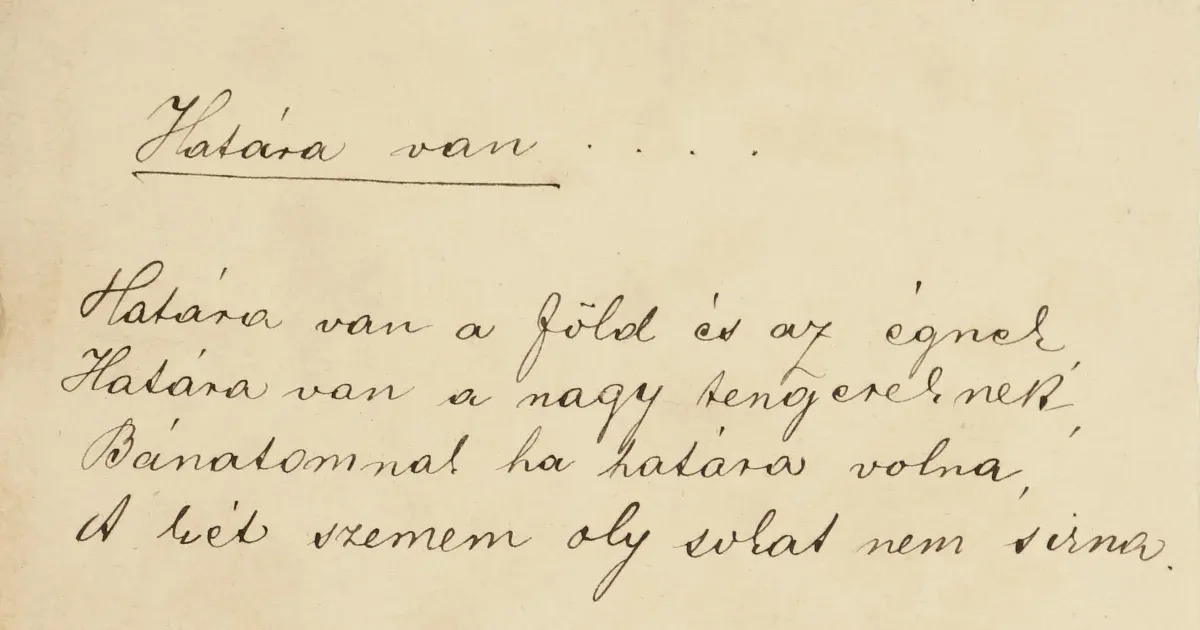 Határa van . . . .
Határa van a föld és az égnek,
Határa van a nagy tengereknek,
Bánatomnak ha határa volna,
A két szemem oly sokat nem sirna.